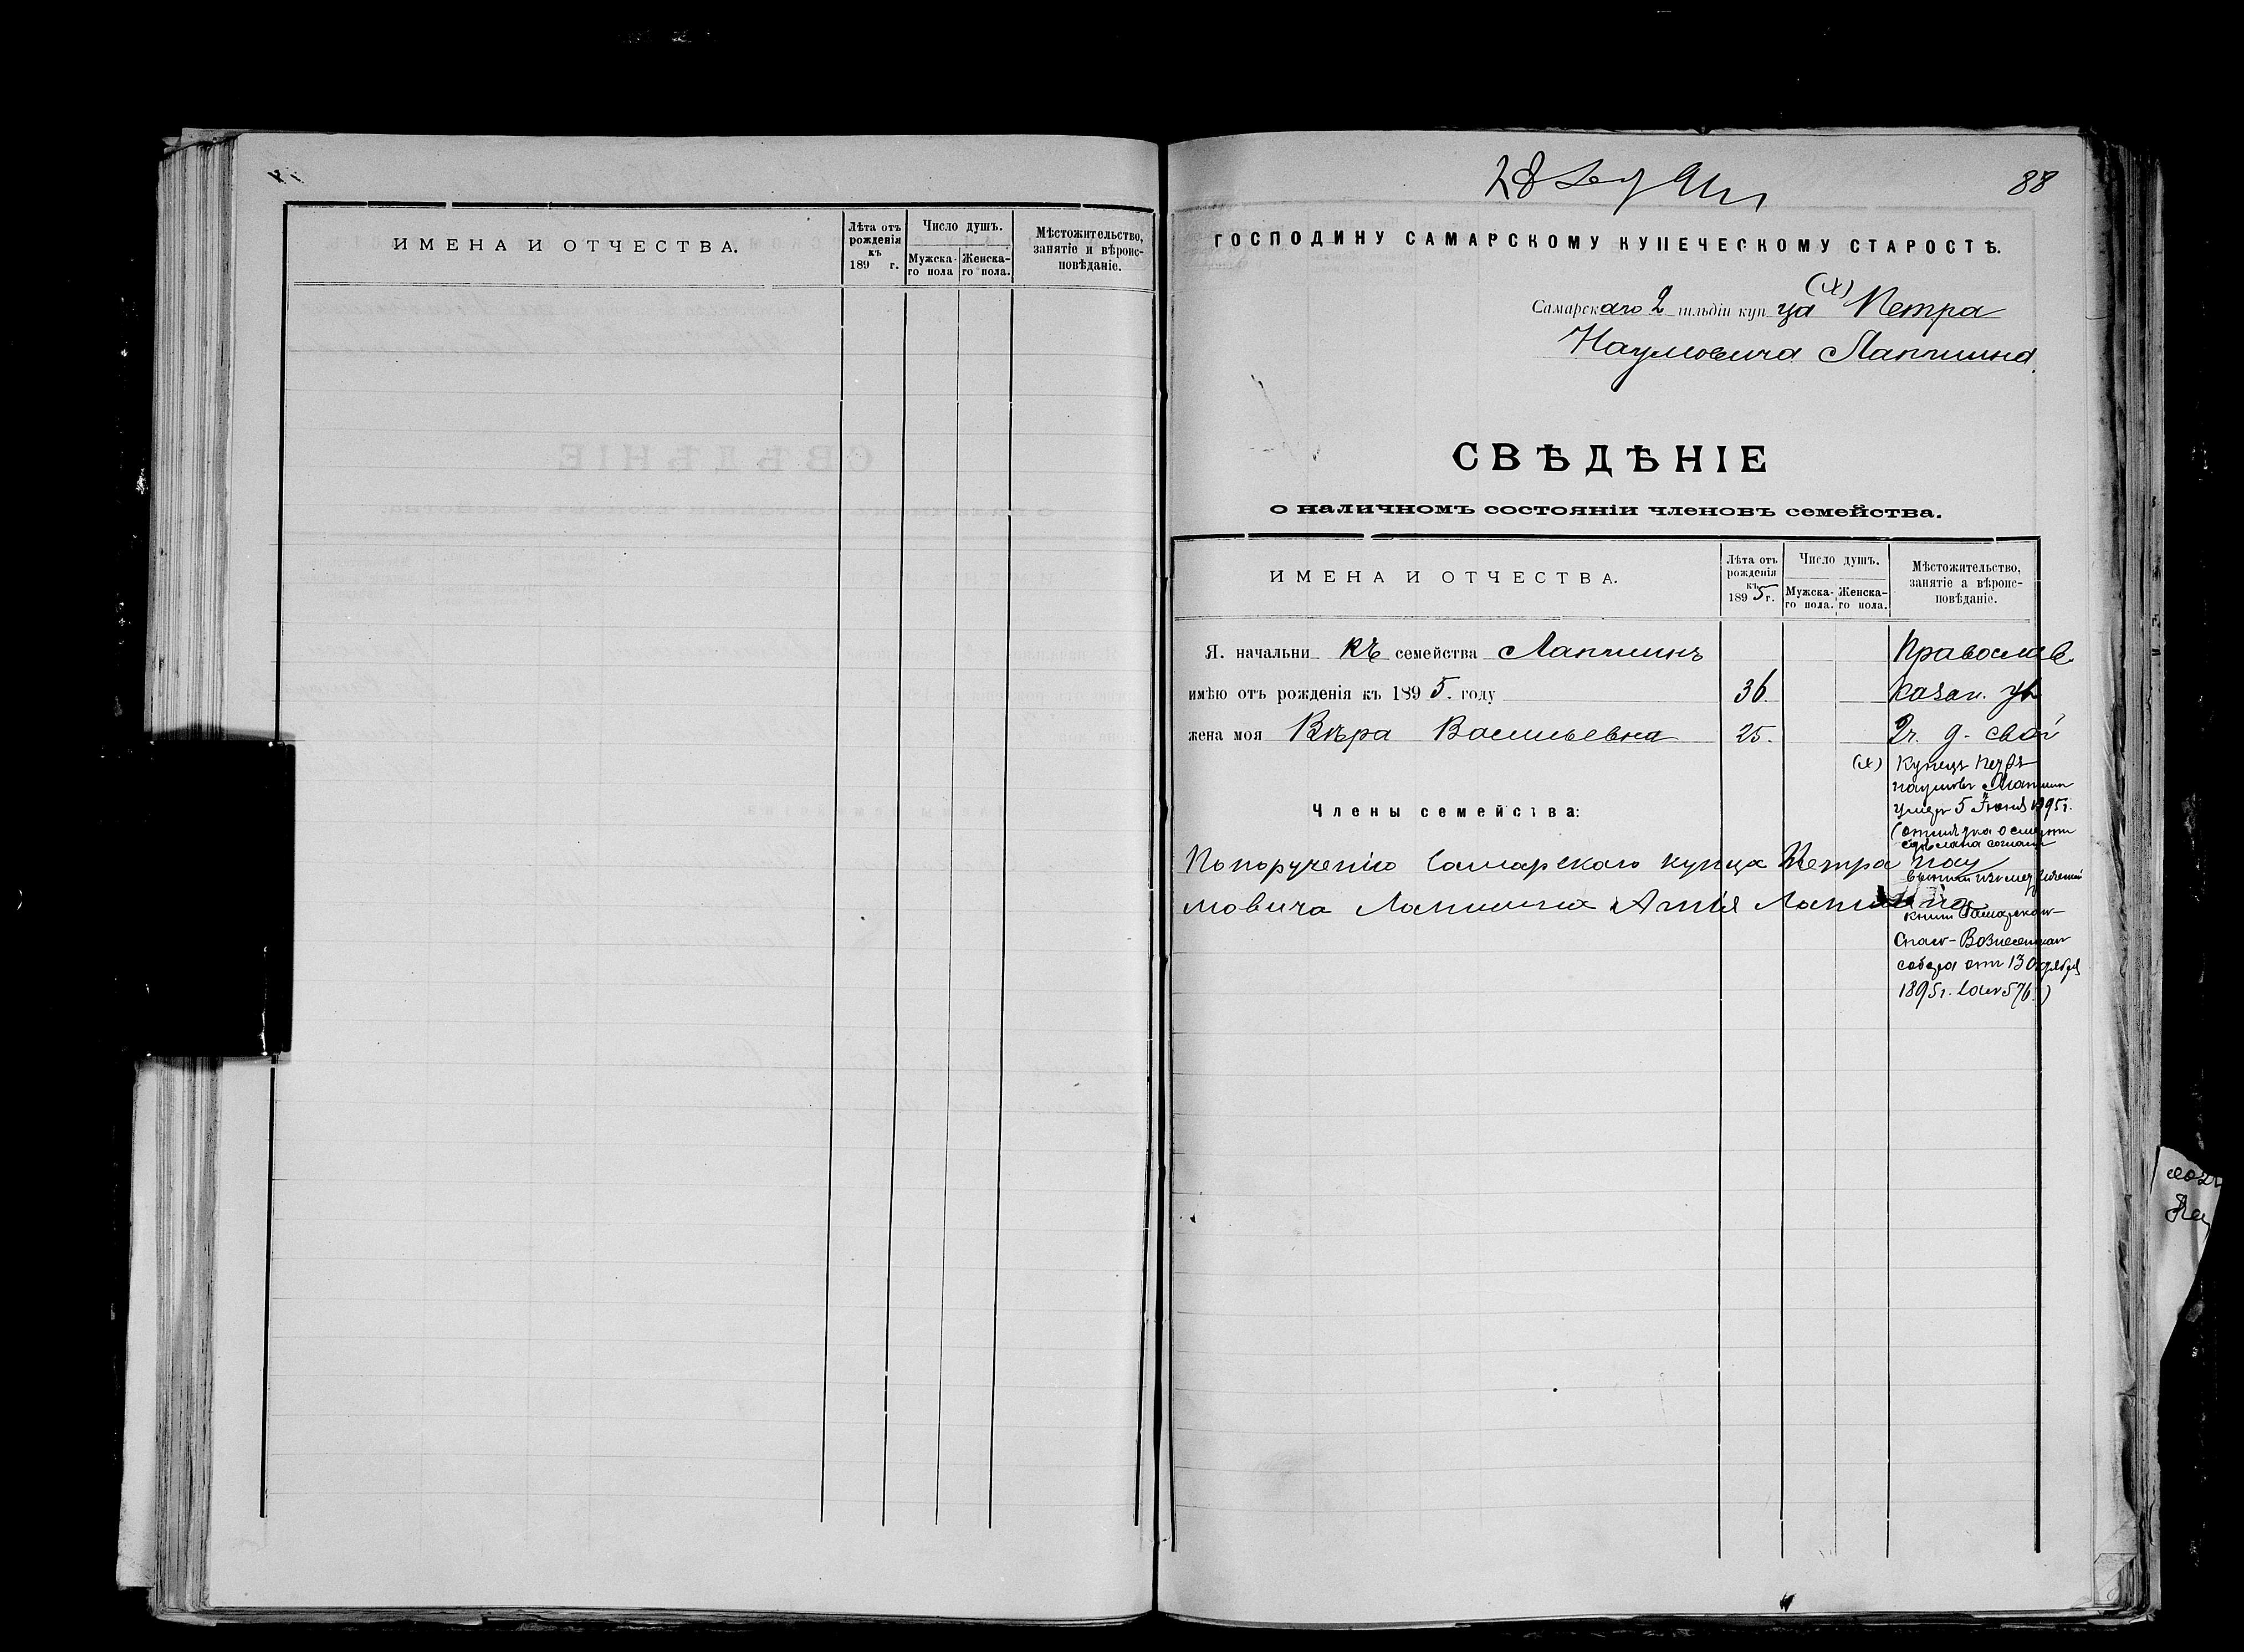 ИМЕНА И ОТЧЕСТВА.
Лѣта отъ рожденія къ 189 г.
Число душъ.
Мужска-
го пола
Женска-
го пола.
Мѣстожительство,
занятіе и вѣроис-
повѣданіе.
28
88
ГОСПОДИНУ САМАРСКОМУ КУПЕЧЕСКОМУ СТАРОСТѢ.
(х)
Самарскаго 2 гильдіи купца Петра
Наумовича Лапшина
СВѢДѢНІЕ
о наличномъ состояніи членовъ семейства.
ИМЕНА И ОТЧЕСТВА.
Лѣта отъ
рожденія
къ
1895 г.
Число душъ.
Мужска-
го пола.
Женска-
го пола.
Мѣстожительство,
занятіе а вѣроис-
повѣданіе.
Я. начальникъ семейства Лапшинъ
Православ.
имѣю отъ рожденія къ 1895. году 36.
Казан. ул
жена моя Вѣра Васильевна 25.
2ч. д. свой
(х) Купецъ Петръ
Наумовъ Лапшин
умеръ 5 Іюня 1895 г.
(отмѣтка о смерти
сдѣлана согласн
Члены семейства:
По порученію Самарскаго купца Петра Нау
мовича Лапшина
книги Самарскаго
Спасо-Вознесенскаг
собора от 13 Октября
1895 г. за № 576.)